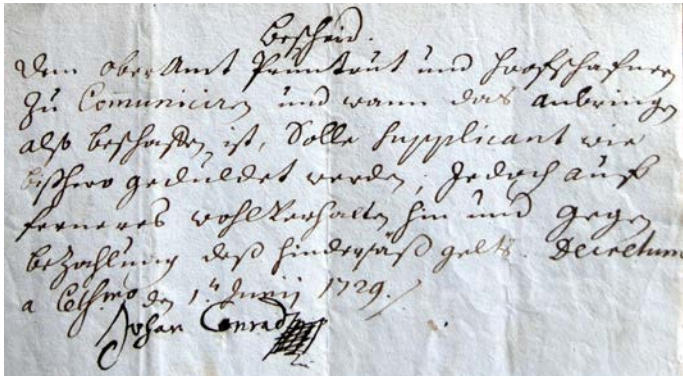 Bescheid.
Dem oberAmt Pruntrut und hooffschafnern
zu Communiciren und wann das anbringen
also beschaffen ist, Solle Supplicant wie
bißhero geduldet werden, Jedoch auff
ferneres wohlverhalten hin und gegen
bezahlung deß hindersäß gelts. Decretum
a den 1. Junij 1729.
Johan Conrad